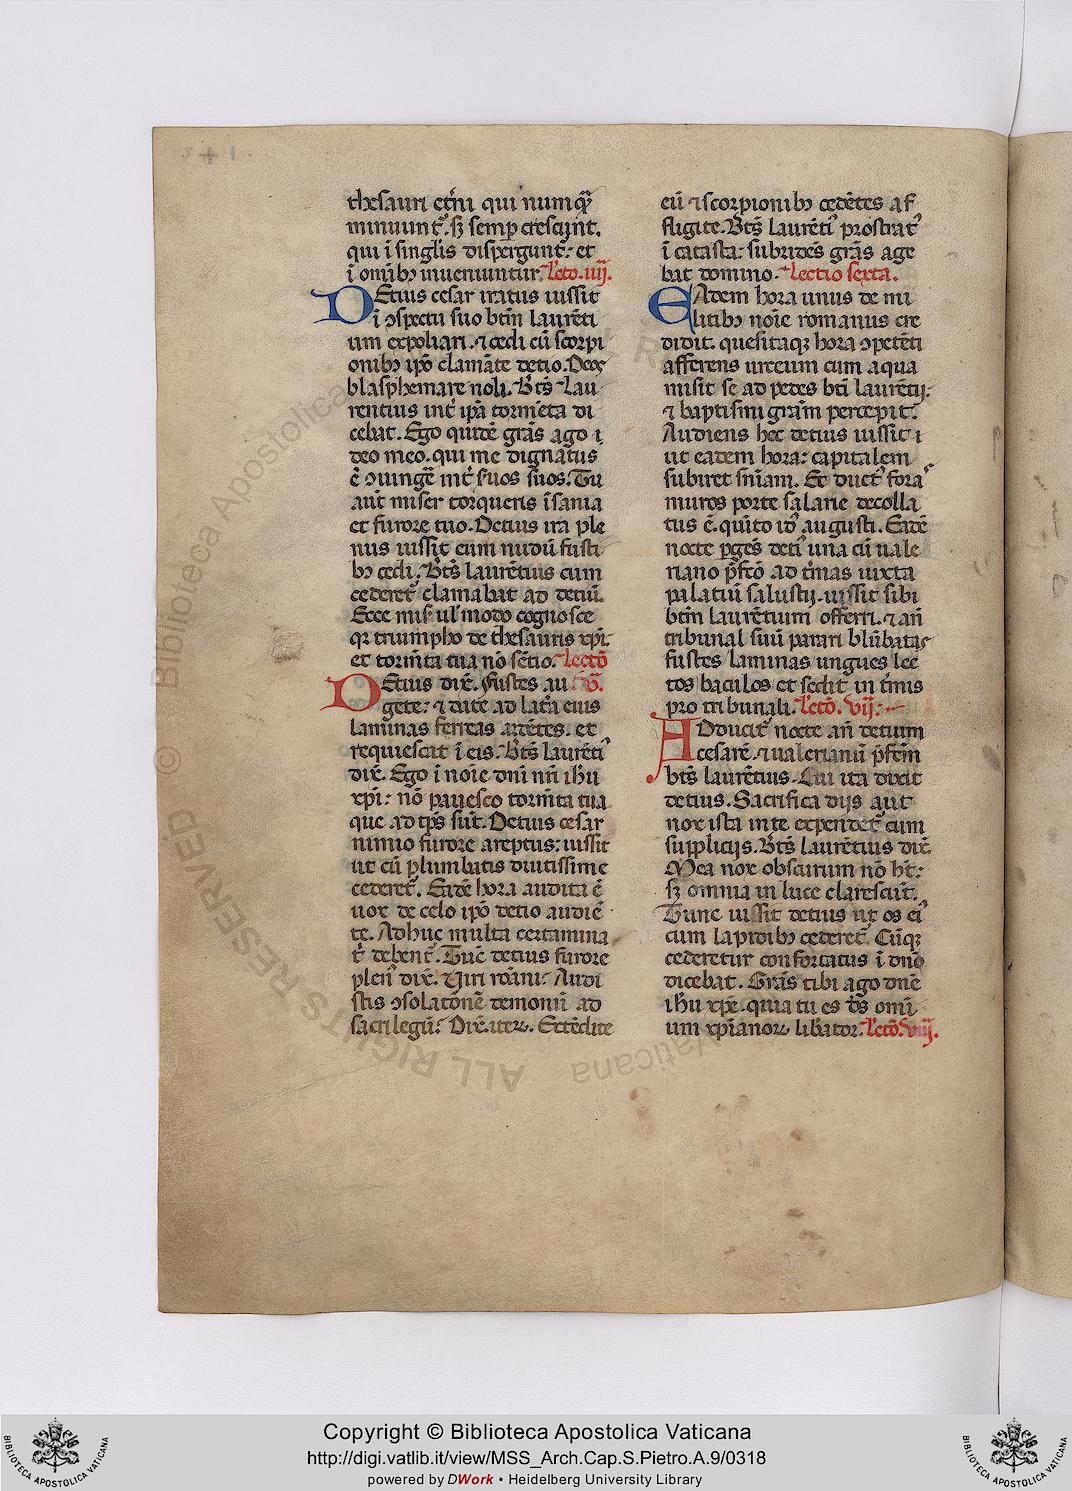 thesauri et̾ni qui numq̃
minuunt᷒. sꝫ semꝑ crescunt.
qui ĩ singlis dispergunt᷒. et
ĩ omĩbꝰ inueniuntur. Lc̃to. iiij.
DEtius cesar iratus iussit
ĩ ꝯspectu suo btm̃ laurẽti
um expoliari. ⁊ cedi cũ scorpi
onibꝰ ip̃o clamãte detio. Deos
blasphemare noli. Bt̃s Lau
rentius int̾ ip̃a tormẽta di
cebat. Ego quidẽ gr̃as ago
deo meo. qui me dignatus
ẽ ꝯiungẽ int̾ suos suos. Tu
aũt miser torqueris ĩsania
et furore tuo. Detius ira ple
nus iussit eum nudũ fusti
bꝰ cedi. Bt̃s laurẽtius cum
cederet᷒ clamabat ad detiũ.
Ecce mis̾ uł modo cognosce
qꝛ triumpho de thesauris xp̃i.
et torm̃ta tua nõ sẽtio. Lectõ
DEtius dix̃. Fustes au v̾.
gete: ⁊ date ad lat̾a eius
laminas ferreas ardẽtes. et
requiescat ĩ eis. Bt̃s laurẽtiꝰ
dix̃. Ego ĩ noĩe dñi nr̃i ih̃u
xp̃i: nõ pauesco torm̃ta tua
que ad tp̃s sũt. Detius cesar
nimio furore areptus: iussit
ut cũ plumbatis diutissime
cederet᷒. Eadẽ hora audita ẽ
uox de celo ip̃o detio audiẽ
te. Adhuc multa certamina
t̾ debent᷒. Tũc detius furore
plenꝰ dix̃. Uiri rõani: Audi
stis ꝯsolatõnẽ demonũ ad
sacrilegũ. Dix̃ iteꝝ. Extẽdite
eũ ⁊ scorpionibꝰ cedẽtes af
fligite. Bt̃s laurẽtiꝰ prostratꝰ
ĩ catasta: subridẽs gr̃as age
bat domino. Lectio sexta.
EAdem hora unus de mi
litibꝰ noĩe romanus cre
didit. quesitaqꝫ hora ꝯpetẽti
afferens urceum cum aqua
misit se ad pedes bt̃i laurẽtij:
⁊ baptismi gr̃am percepit.
Audiens hec detius iussit
ut eadem hora: capitalem
subiret sñiam. Et ductꝰ fora
muros porte salarie decolla
tus ẽ. quĩto idꝰ augusti. Eadẽ
nocte ꝑgẽs detiꝰ una cũ uale
riano p̃fctõ ad t̾mas iuxta
palatiũ salustij. iussit sibi
btm̃ laurẽtium offerri. ⁊ añ
tribunal suũ parari blũbatas
fustes laminas ungues lec
tos baculos et sedit in t̾mis
pro tribunali. Lectõ. vij.
ADducit᷒ nocte añ detium
cesarẽ. ⁊ ualerianũ p̃fctm̃
bt̃s laurẽtius. Cui ita dixit
detius. Sacrifica dijs aut
nox ista in te expendet᷒ cum
supplicijs. Bt̃s laurẽtius dix̃.
Mea nox obscurum nõ ht̃:
sꝫ omnia in luce clarescũt.
Tunc iussit detius ut os eiꝰ
cum lapidibꝰ cederet᷒. Cũqꝫ
cederetur confortatus ĩ dño
dicebat. Gr̃as tibi ago dñe
ih̃u xp̃e. quia tu es d̃s omĩ
um xp̃ianoꝝ lib̾ator. Lectõ. viij.
© Biblioteca Apostolica Vaticana
ALL RIGHTS RESERVED
Copyright © Biblioteca Apostolica Vaticana
http://digi.vatlib.it/view/MSS_Arch.Cap.S.Pietro.A.9/0318
powered by DWork • Heidelberg University Library
BIBLIOTECA APOSTOLICA VATICANA
BIBLIOTECA APOSTOLICA VATICANA